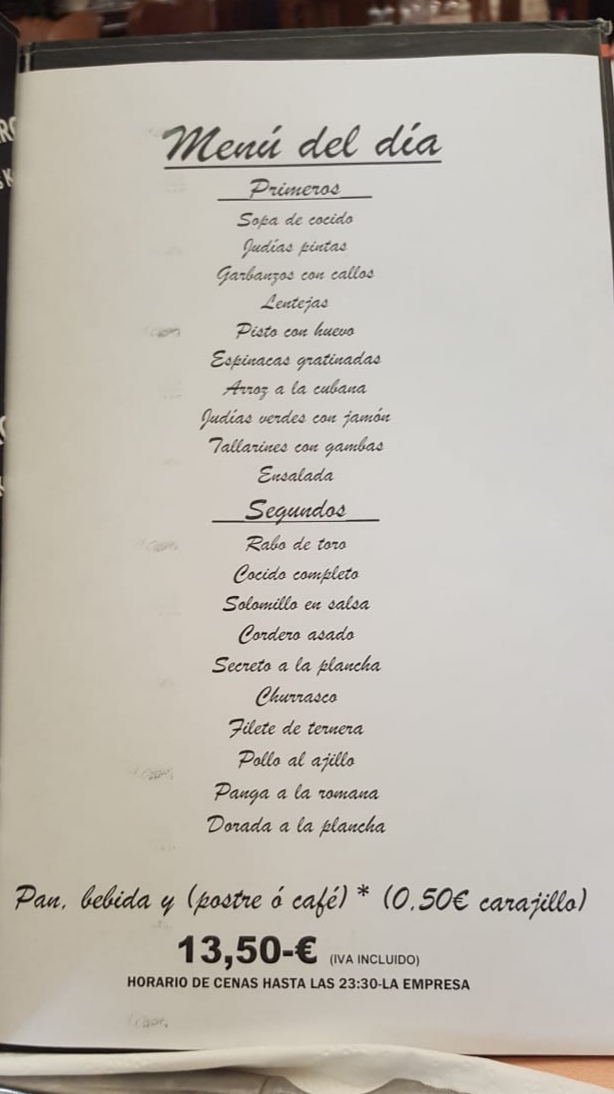 Menú del día
Primeros
Sopa de cocido
Judías pintas
Garbanzos con callos
Lentejas
Pisto con huevo
Espinacas gratinadas
Arroz a la cubana
Judías verdes con jamón
Tallarines con gambas
Ensalada
Segundos
Rabo de toro
Cocido completo
Solomillo en salsa
Cordero asado
Secreto a la plancha
Churrasco
Filete de ternera
Pollo al ajillo
Panga a la romana
Dorada a la plancha
Pan, bebida y (postre ó café) * (0,50€ carajillo)
13,50-€ (IVA INCLUIDO)
HORARIO DE CENAS HASTA LAS 23:30-LA EMPRESA